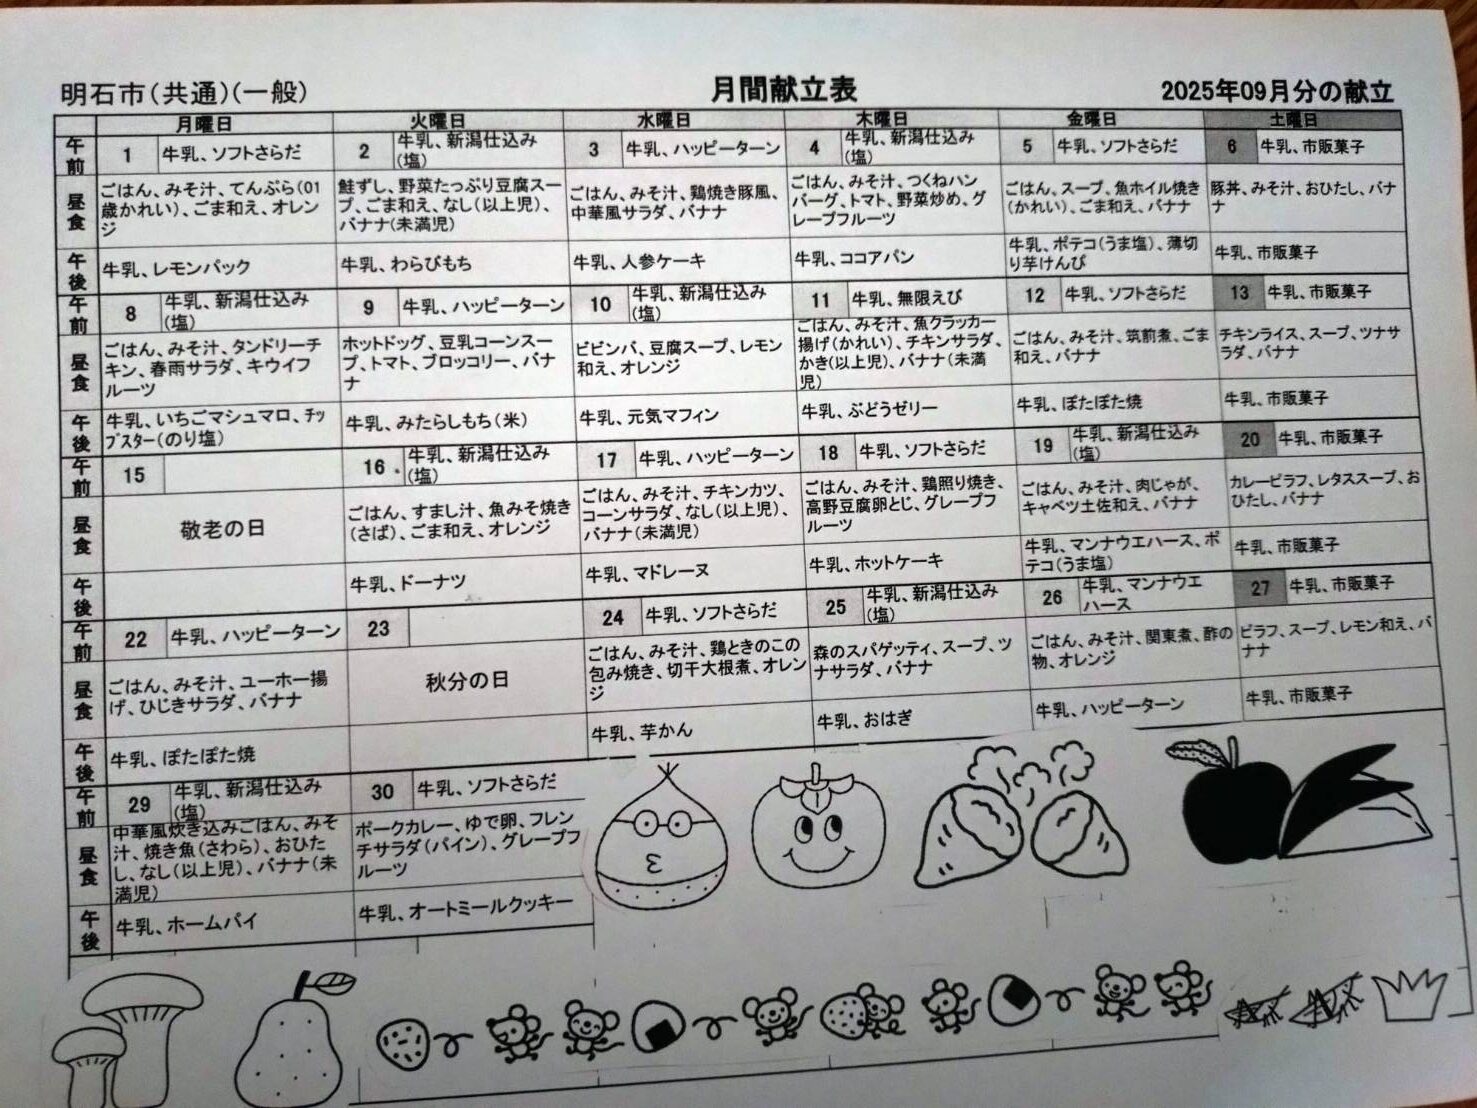 明石市(共通)(一般)
月間献立表
2025年09月分の献立
月曜日
火曜日
水曜日
木曜日
金曜日
土曜日
午前
1
牛乳、ソフトさらだ
2
牛乳、新潟仕込み
(塩)
3
牛乳、ハッピーターン
4
牛乳、新潟仕込み
(塩)
5
牛乳、ソフトさらだ
6
牛乳、市販菓子
昼食
ごはん、みそ汁、てんぷら(01
歳かれい)、ごま和え、オレン
ジ
鮭ずし、野菜たっぷり豆腐スー
プ、ごま和え、なし(以上児)、
バナナ(未満児)
ごはん、みそ汁、鶏焼き豚風、
中華風サラダ、バナナ
ごはん、みそ汁、つくねハン
バーグ、トマト、野菜炒め、グ
レープフルーツ
ごはん、スープ、魚ホイル焼き
(かれい)、ごま和え、バナナ
豚丼、みそ汁、おひたし、バナ
ナ
午後
牛乳、レモンパック
牛乳、わらびもち
牛乳、人参ケーキ
牛乳、ココアパン
牛乳、ポテコ(うま塩)、薄切
り芋けんぴ
牛乳、市販菓子
午前
8
牛乳、新潟仕込み
(塩)
9
牛乳、ハッピーターン
10
牛乳、新潟仕込み
(塩)
11
牛乳、無限えび
12
牛乳、ソフトさらだ
13
牛乳、市販菓子
昼食
ごはん、みそ汁、タンドリーチ
キン、春雨サラダ、キウイフ
ルーツ
ホットドッグ、豆乳コーンスー
プ、トマト、ブロッコリー、バナ
ナ
ビビンバ、豆腐スープ、レモン
和え、オレンジ
ごはん、みそ汁、魚クラッカー
揚げ(かれい)、チキンサラダ、
かき(以上児)、バナナ(未満
児)
ごはん、みそ汁、筑前煮、ごま
和え、バナナ
チキンライス、スープ、ツナサ
ラダ、バナナ
午後
牛乳、いちごマシュマロ、チッ
プスター(のり塩)
牛乳、みたらしもち(米)
牛乳、元気マフィン
牛乳、ぶどうゼリー
牛乳、ぽたぽた焼
牛乳、市販菓子
午前
15
16
牛乳、新潟仕込み
(塩)
17
牛乳、ハッピーターン
18
牛乳、ソフトさらだ
19
牛乳、新潟仕込み
(塩)
20
牛乳、市販菓子
昼食
敬老の日
ごはん、すまし汁、魚みそ焼き
(さば)、ごま和え、オレンジ
ごはん、みそ汁、チキンカツ、
コーンサラダ、なし(以上児)、
バナナ(未満児)
ごはん、みそ汁、鶏照り焼き、
高野豆腐卵とじ、グレープフ
ルーツ
ごはん、みそ汁、肉じゃが、
キャベツ土佐和え、バナナ
カレーピラフ、レタススープ、お
ひたし、バナナ
午後
牛乳、ドーナツ
牛乳、マドレーヌ
牛乳、ホットケーキ
牛乳、マンナウエハース、ポ
テコ(うま塩)
牛乳、市販菓子
午前
22
牛乳、ハッピーターン
23
24
牛乳、ソフトさらだ
25
牛乳、新潟仕込み
(塩)
26
牛乳、マンナウエ
ハース
27
牛乳、市販菓子
昼食
ごはん、みそ汁、ユーホー揚
げ、ひじきサラダ、バナナ
秋分の日
ごはん、みそ汁、鶏ときのこの
包み焼き、切干大根煮、オレン
ジ
森のスパゲッティ、スープ、ツ
ナサラダ、バナナ
ごはん、みそ汁、関東煮、酢の
物、オレンジ
ピラフ、スープ、レモン和え、バ
ナナ
午後
牛乳、ぽたぽた焼
牛乳、芋かん
牛乳、おはぎ
牛乳、ハッピーターン
牛乳、市販菓子
午前
29
牛乳、新潟仕込み
(塩)
30
牛乳、ソフトさらだ
昼食
中華風炊き込みごはん、みそ
汁、焼き魚(さわら)、おひた
し、なし(以上児)、バナナ(未
満児)
ポークカレー、ゆで卵、フレン
チサラダ(パイン)、グレープフ
ルーツ
午後
牛乳、ホームパイ
牛乳、オートミールクッキー